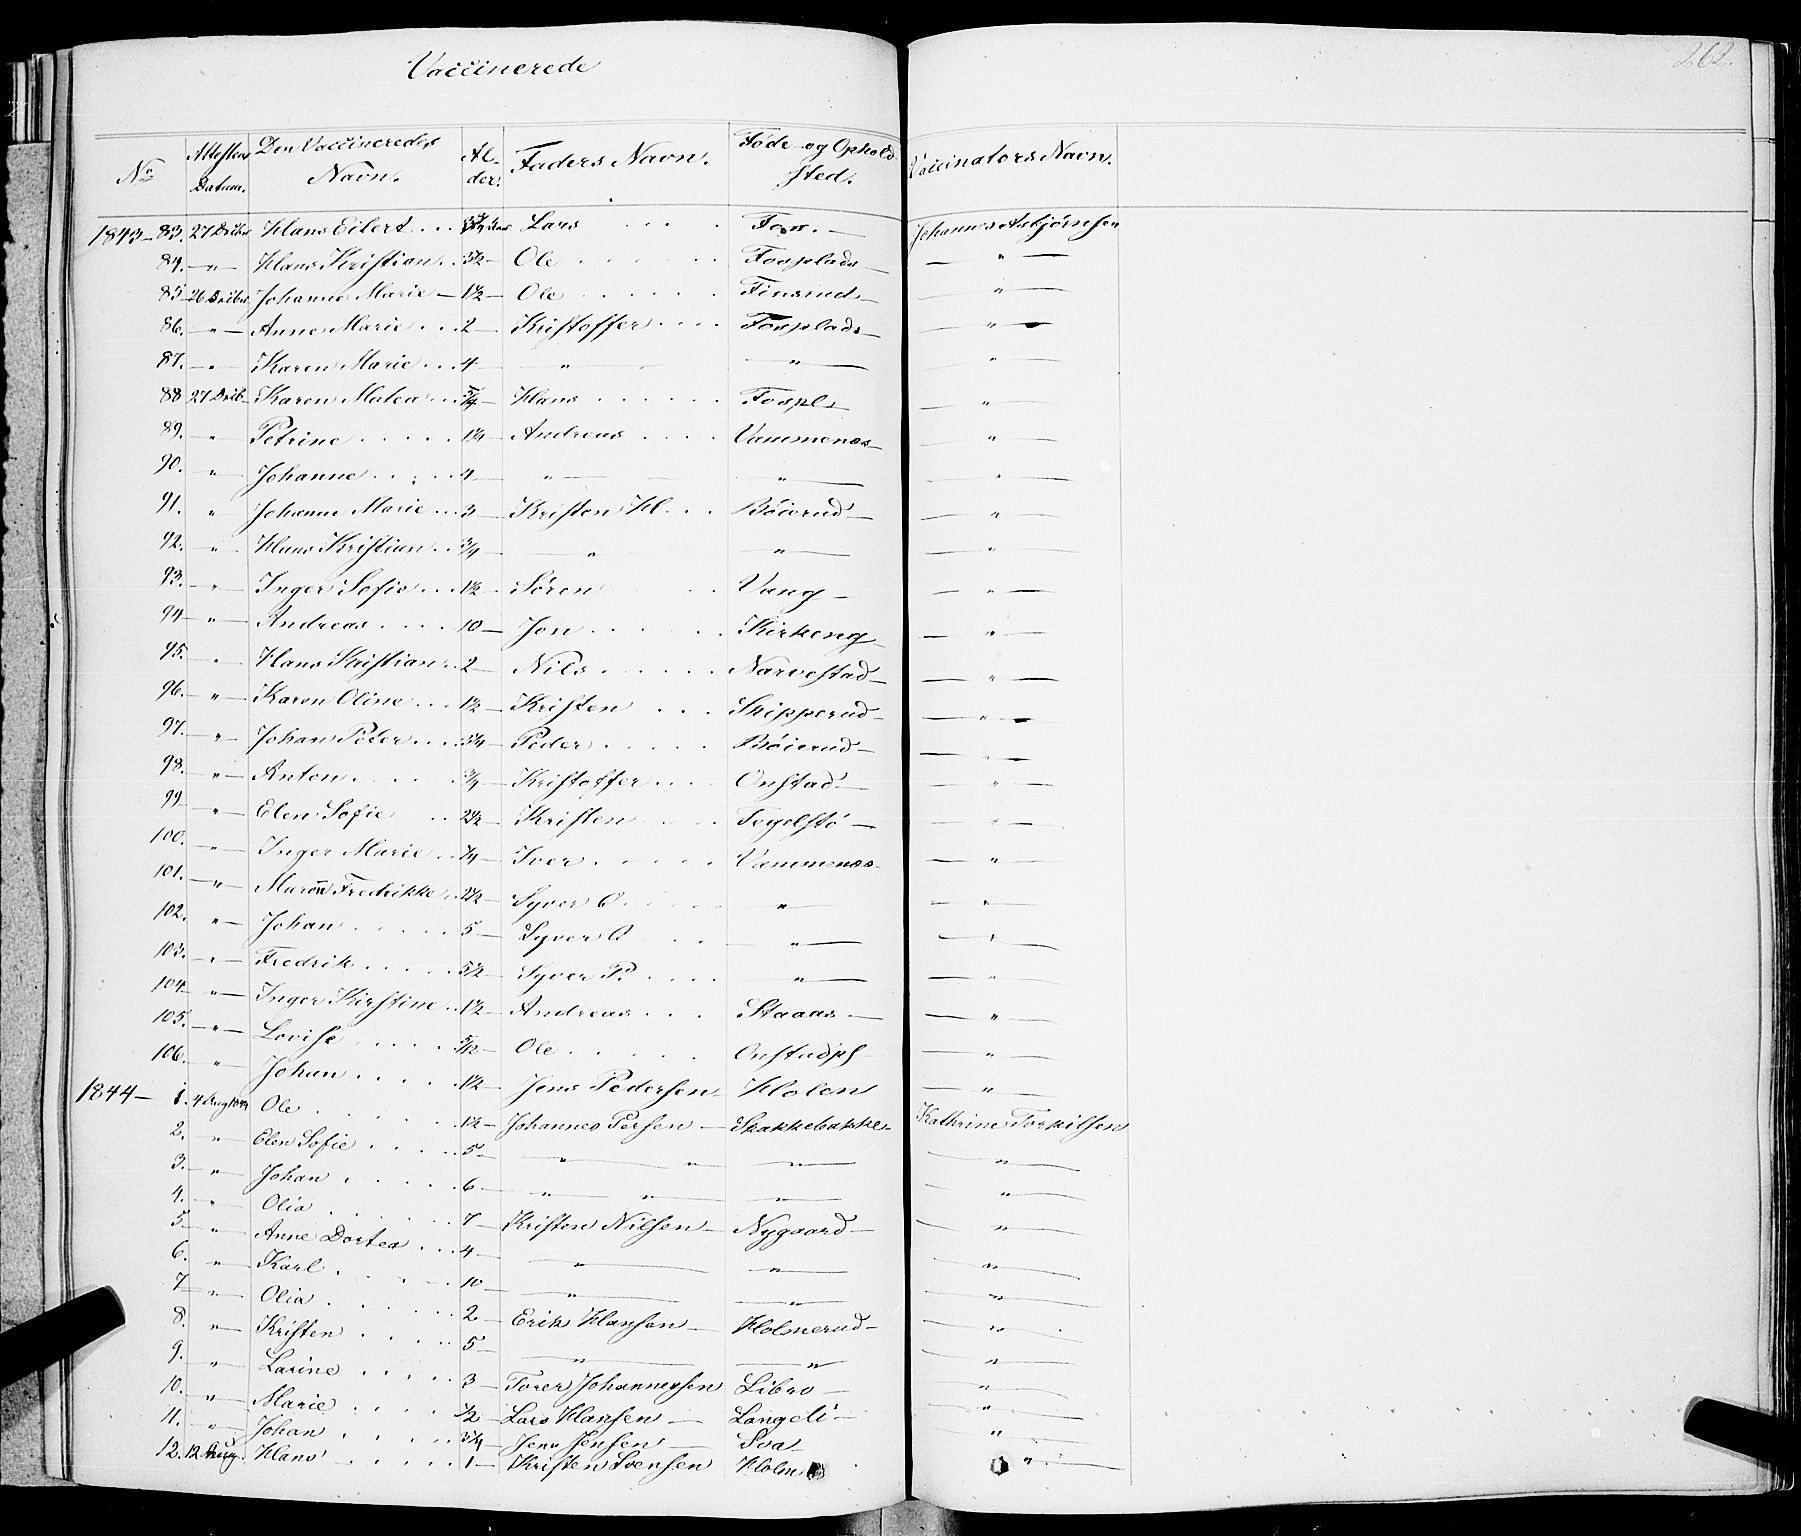 Vaccinerede
262.
No Attestens Datum. Den Vaccineredes Navn. Alder. Faders Navn. Føde og Ophold sted. Vaccinators Navn.
1843 - 83. 27 Decbr Hans Eilert . . . Lars . . . Foss. — Johannes Asbjørnsen
84. — " — Hans Kristian . . 3½ — Ole . . . Fosplads — — " —
85 - 26 Decbr Johanne Marie — 1½ — Ole . . . Finsrud — — " —
86. — " — Anne Marie . . . 2 — Kristoffer . . . Fosplads — — " —
87. — " — Karen Marie . . . 4 — — " — — " — — " —
88 27 Decbr Karen Matea . . 5/4 — Hans . . . Fospl — — " —
89. " — Petrine . . . 1¼ — Andreas . . . Vammenæs — — " —
90. " — Johanne . . . 4 — — " — — " — — " —
91. " Johanne Marie . . . 3 — Kristen H. . . Böierud — — " —
92. " — Hans Kristian . . 3/4 — — " — — " — — " —
93. — " — Inger Sofie . . . 1½ — Sören . . . Vang — — " —
94 — " — Andreas . . . 10 — Jon . . . Kirkeng — — " —
95. " Hans Kristian . . 2 — Nils . . . Narvestad — — " —
96. — " — Karen Oline . . . 1½ — Kristen . . . Skipperud — — " —
97. — " — Johan Peter . . . 3/4 — Peder . . . Böierud — — " —
98. — " — Anton . . . 3/4 — Kristoffer . . . Onstad — — " —
99 — " — Elen Sofie . . 2½ — Kristen . . . Tegelstö — — " —
100. — " — Inger Marie . . ¼ — Iver . . . Vammenæs — — " —
101. — " — Maren Fredrikke . 2½ — Syver O. . . . — " — — " —
102. " — Johan . . . 5 — Syver O. . . — " — — " —
103. — " — Fredrik . . . 5½ — Syver P. . . . — " — — " —
104 — " — Inger Kirstine . . 1½ — Andreas . . . Staaas — — " —
105. — " — Lovise . . . 5/12 — Ole . . . Onstadpl — " —
106. " Johan . . . 1½ — Jens Pedersen — Holen — " —
1844 — 1. 4 Aug 1844 Ole . . . 1½ — Johannes Persen — Skakkebakke — Kathrine Torkilsen
2. — " — Elen Sofie . . . 5 — " " — " — — " —
3. — " — Johan . . . 6 — " " — " — — " —
4. " Olia . . . 7 — Kristen Nilsen — Nygaard — — " —
5. — " — Anne Dortea . . . 4 — — " — — " — — " —
6. — " — Karl . . . 10 — — " — — " — — " —
7 — " — Olia . . . 2 — Erik Hansen — Holmerud — — " —
8. " — Kristen . . . 5 — — " — — " — — " —
9. — " — Larine . . . 3 — Torer Johannessen Libro — — " —
10. — " — Marie . . . ½ — Lars Hansen — Langeli — — " —
11. — " — Johan . . . 3/4 Jens Jensen — Sva — — " —
12. 12 Aug. Hans . . . 1 — Kristen Svensen Holm — " —